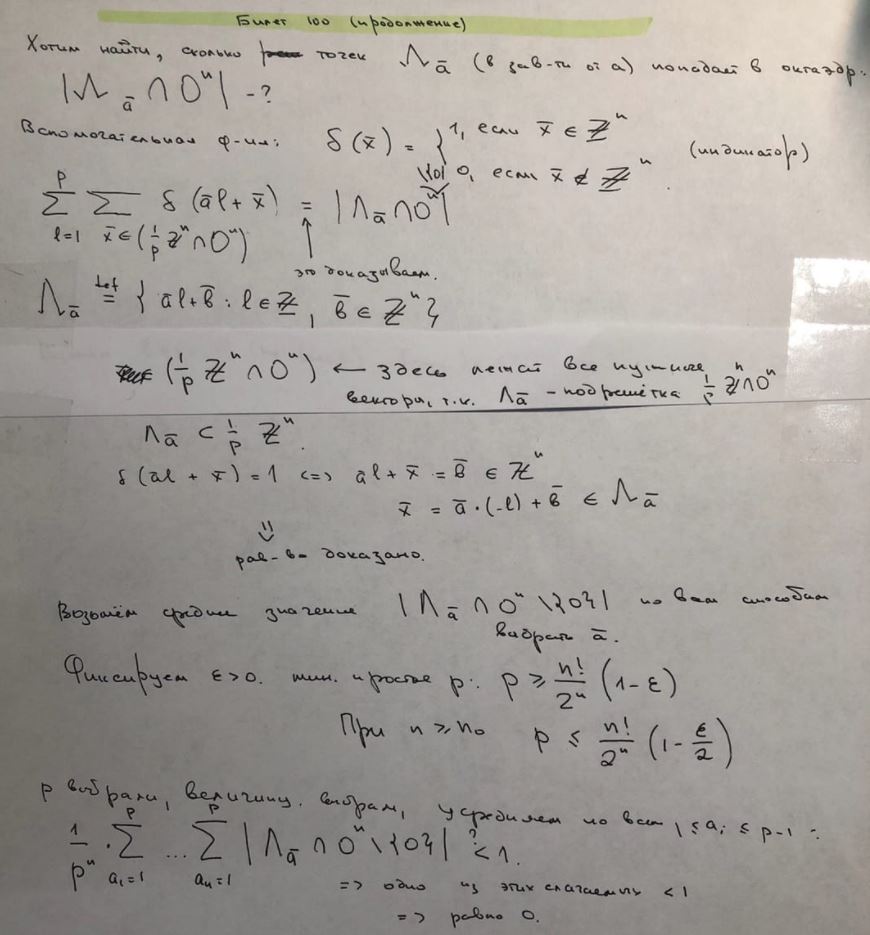 Билет 100 (продолжение)
Хотим найти, сколько точек Λ_ā (в зав-ти от a) попадает в октаэдр:
|Λ_ā ∩ Oⁿ| - ?
Вспомогательная ф-ия: δ(x̄) = { 1, если x̄ ∈ ℤⁿ
0, если x̄ ∉ ℤⁿ. (индикатор)
\{0}
∑_{l=1}^{p} ∑_{x̄∈(1/p ℤⁿ ∩ Oⁿ)} δ(āl + x̄) = |Λ_ā ∩ Oⁿ|
↑
это доказываем.
Λ_ā =^{def} { āl + b̄ : l ∈ ℤ, b̄ ∈ ℤⁿ }
(1/p ℤⁿ ∩ Oⁿ) ← здесь лежат все нужные
векторы, т.к. Λ_ā - подрешётка 1/p ℤⁿ ∩ Oⁿ
Λ_ā ⊂ 1/p ℤⁿ.
δ(āl + x̄) = 1 <=> āl + x̄ = b̄ ∈ ℤⁿ
x̄ = ā·(-l) + b̄ ∈ Λ_ā
⇓
рав-во доказано.
Возьмём среднее значение |Λ_ā ∩ Oⁿ \{0}| по всем способам
выбрать ā.
Фиксируем ε>0. мин. простое p: p ≥ n!/2ⁿ (1-ε)
При n ≥ n₀ p ≤ n!/2ⁿ (1 - ε/2)
p выбрали, величину выбрали, усредняем по всем 1 ≤ aᵢ ≤ p-1 :
1/pⁿ · ∑_{a₁=1}^{p} ... ∑_{aₙ=1}^{p} |Λ_ā ∩ Oⁿ \{0}| <^{?} 1.
=> одно из этих слагаемых < 1
=> равно 0.